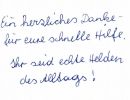 Ein herzliches Danke-
für eure schnelle Hilfe.
Ihr seid echte Helden
des Alltags!